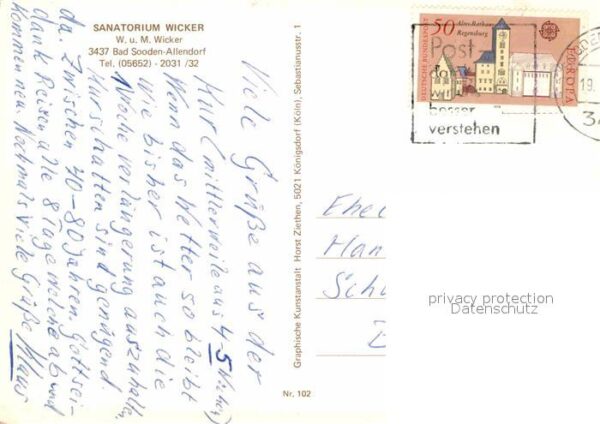 SANATORIUM WICKER
W. u. M. Wicker
3437 Bad Sooden-Allendorf
Tel. (05652) - 2031 /32
Viele Grüße aus der
Kur (mittlerweile aus 4-5 Wochen)
Wenn das Wetter so bleibt
wie bisher ist auch die
Woche verlängerung auszuhalten,
Kurschatten sind genügend
da. Zwischen 70-80 Jahren. Gottsei-
dank Reisen alle 8 Tage welche ab und
kommen neu. Nochmals viele Grüße Klaus
Graphische Kunstanstalt Horst Ziethen, 5021 Königsdorf (Köln), Sebastianusstr. 1
Nr. 102
50
Altes Rathaus
Regensburg
DEUTSCHE BUNDESPOST
EUROPA
Post
besser
verstehen
19.
Ehe
Han
Schu
privacy protection
Datenschutz